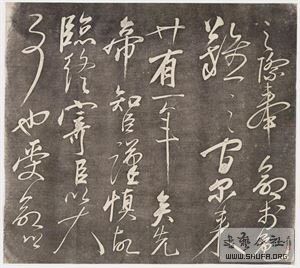 之際奉命於危
難之間爾來
廿有一年矣先
帝知臣謹慎故
臨終寄臣以大
事也受命以
书艺公社
WWW.SHUFA.ORG